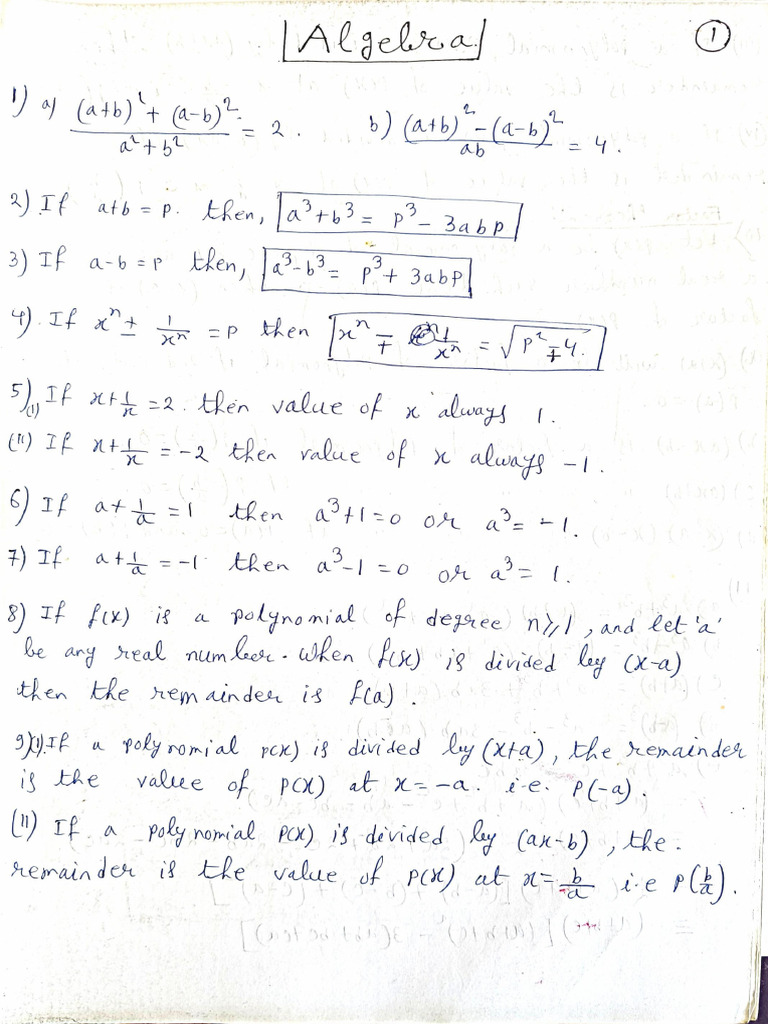 Algebra
①
1) a) ((a+b)² + (a-b)²)/(a²+b²) = 2. b) ((a+b)² - (a-b)²)/ab = 4.
2) If a+b = p. then, a³+b³ = p³ - 3abp
3) If a-b = p then, a³-b³ = p³ + 3abp
4). If xⁿ ± 1/xⁿ = p then xⁿ ∓ 1/xⁿ = √(p² ∓ 4.)
5)(i) If x+1/x = 2. then value of x always 1.
(ii) If x+1/x = -2 then value of x always -1.
6) If a+1/a = 1 then a³+1=0 or a³ = -1.
7) If a+1/a = -1 then a³-1=0 or a³ = 1.
8) If f(x) is a polynomial of degree n≥1, and let 'a'
be any real number. when f(x) is divided by (x-a)
then the remainder is f(a).
9)(i). If a polynomial p(x) is divided by (x+a), the remainder
is the value of p(x) at x=-a. i.e. p(-a).
(ii) If a polynomial p(x) is divided by (ax-b), the.
remainder is the value of p(x) at x=b/a i.e p(b/a).